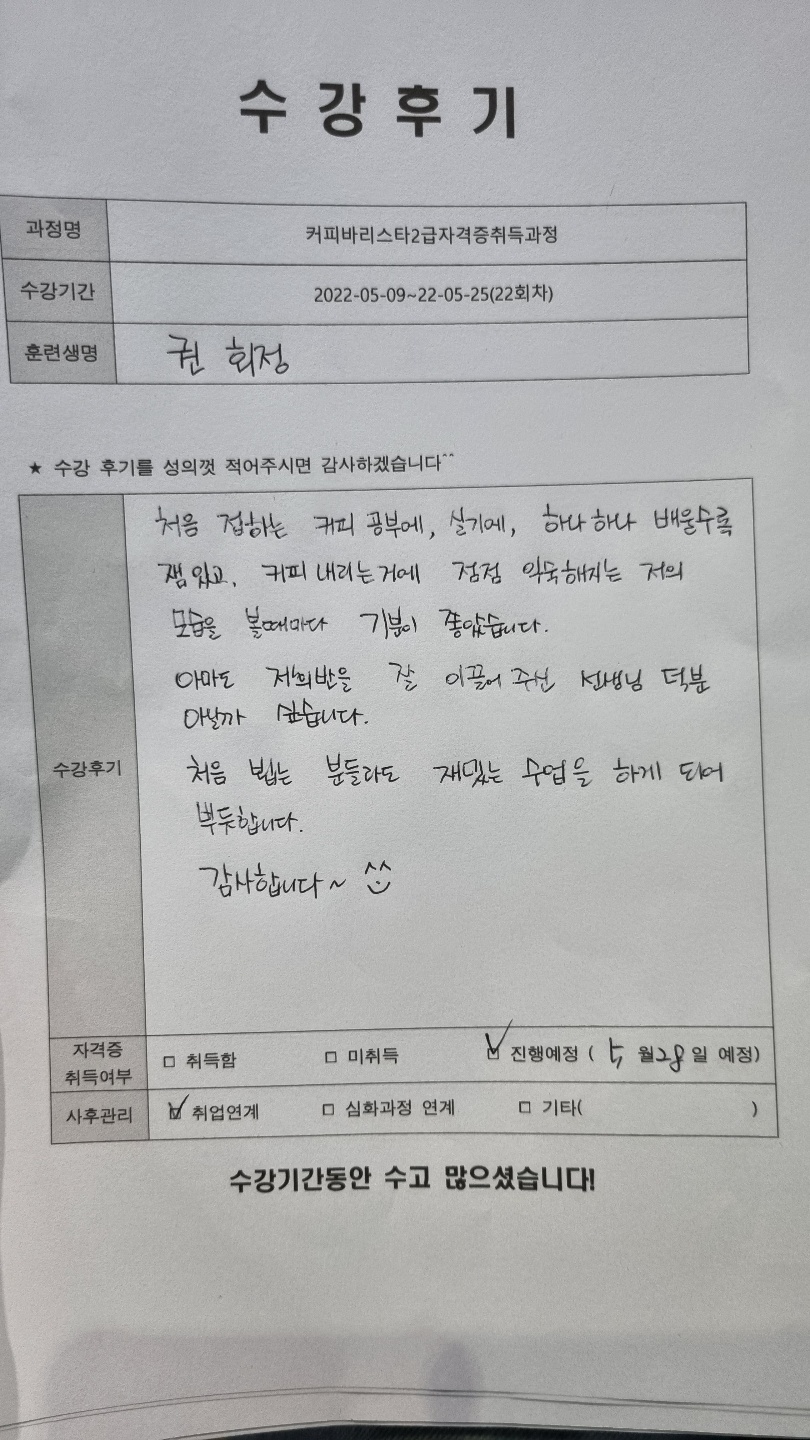 수강후기
과정명 커피바리스타2급자격증취득과정
수강기간 2022-05-09~22-05-25(22회차)
훈련생명 권 회정
★ 수강 후기를 성의껏 적어주시면 감사하겠습니다^^
처음 접하는 커피 공부에, 실기에, 하나하나 배울수록
잼있고, 커피 내리는거에 점점 익숙해지는 저의
모습을 볼때마다 기분이 좋았습니다.
아마도 저희반을 잘 이끌어 주신 선생님 덕분
아닐까 싶습니다.
수강후기
처음 뵙는 분들라도 재밌는 수업을 하게 되어
뿌듯합니다.
감사합니다~ ^^
자격증
취득여부
□ 취득함 □ 미취득 ☑ 진행예정 ( 5 월 28 일 예정)
사후관리 ☑ 취업연계 □ 심화과정 연계 □ 기타( )
수강기간동안 수고 많으셨습니다!